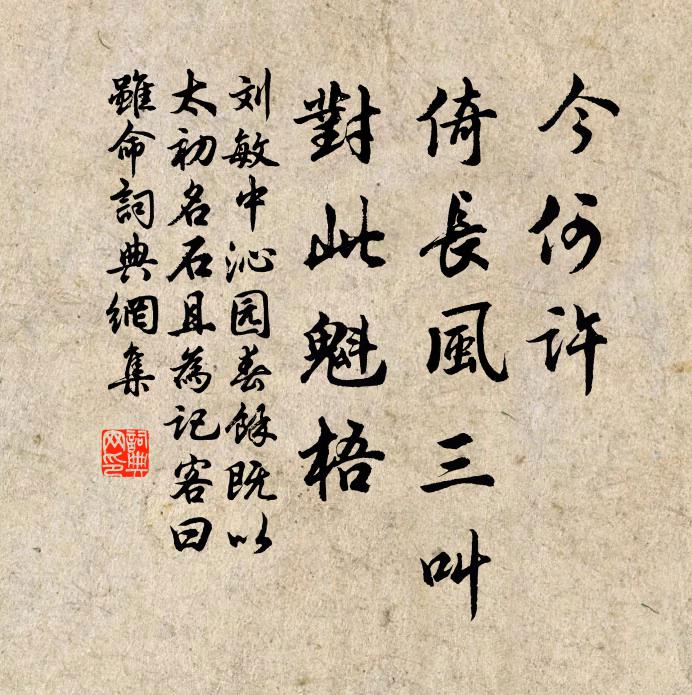 今何許
倚長風三叫
對此魁梧
刘敏中沁园春餘既以
太初名石且為记客曰
雖命詞典網集
詞典網印